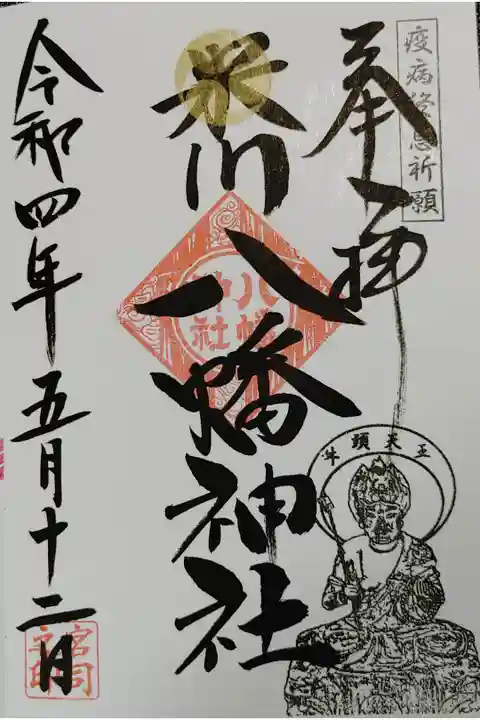 疫病終息祈願
奉拝
米川八幡神社
牛頭天王
令和四年五月十二日
宮司之印